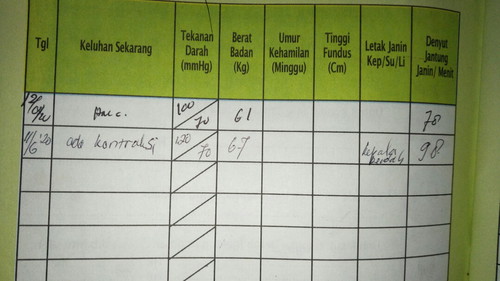 Tgl Keluhan Sekarang Tekanan Darah (mmHg) Berat Badan (Kg) Umur Kehamilan (Minggu) Tinggi Fundus (Cm) Letak Janin Kep/Su/Li Denyut Jantung Janin/ Menit
100/70 61 78
11/6 '20 ada kontraksi 120/70 67 kepala 98